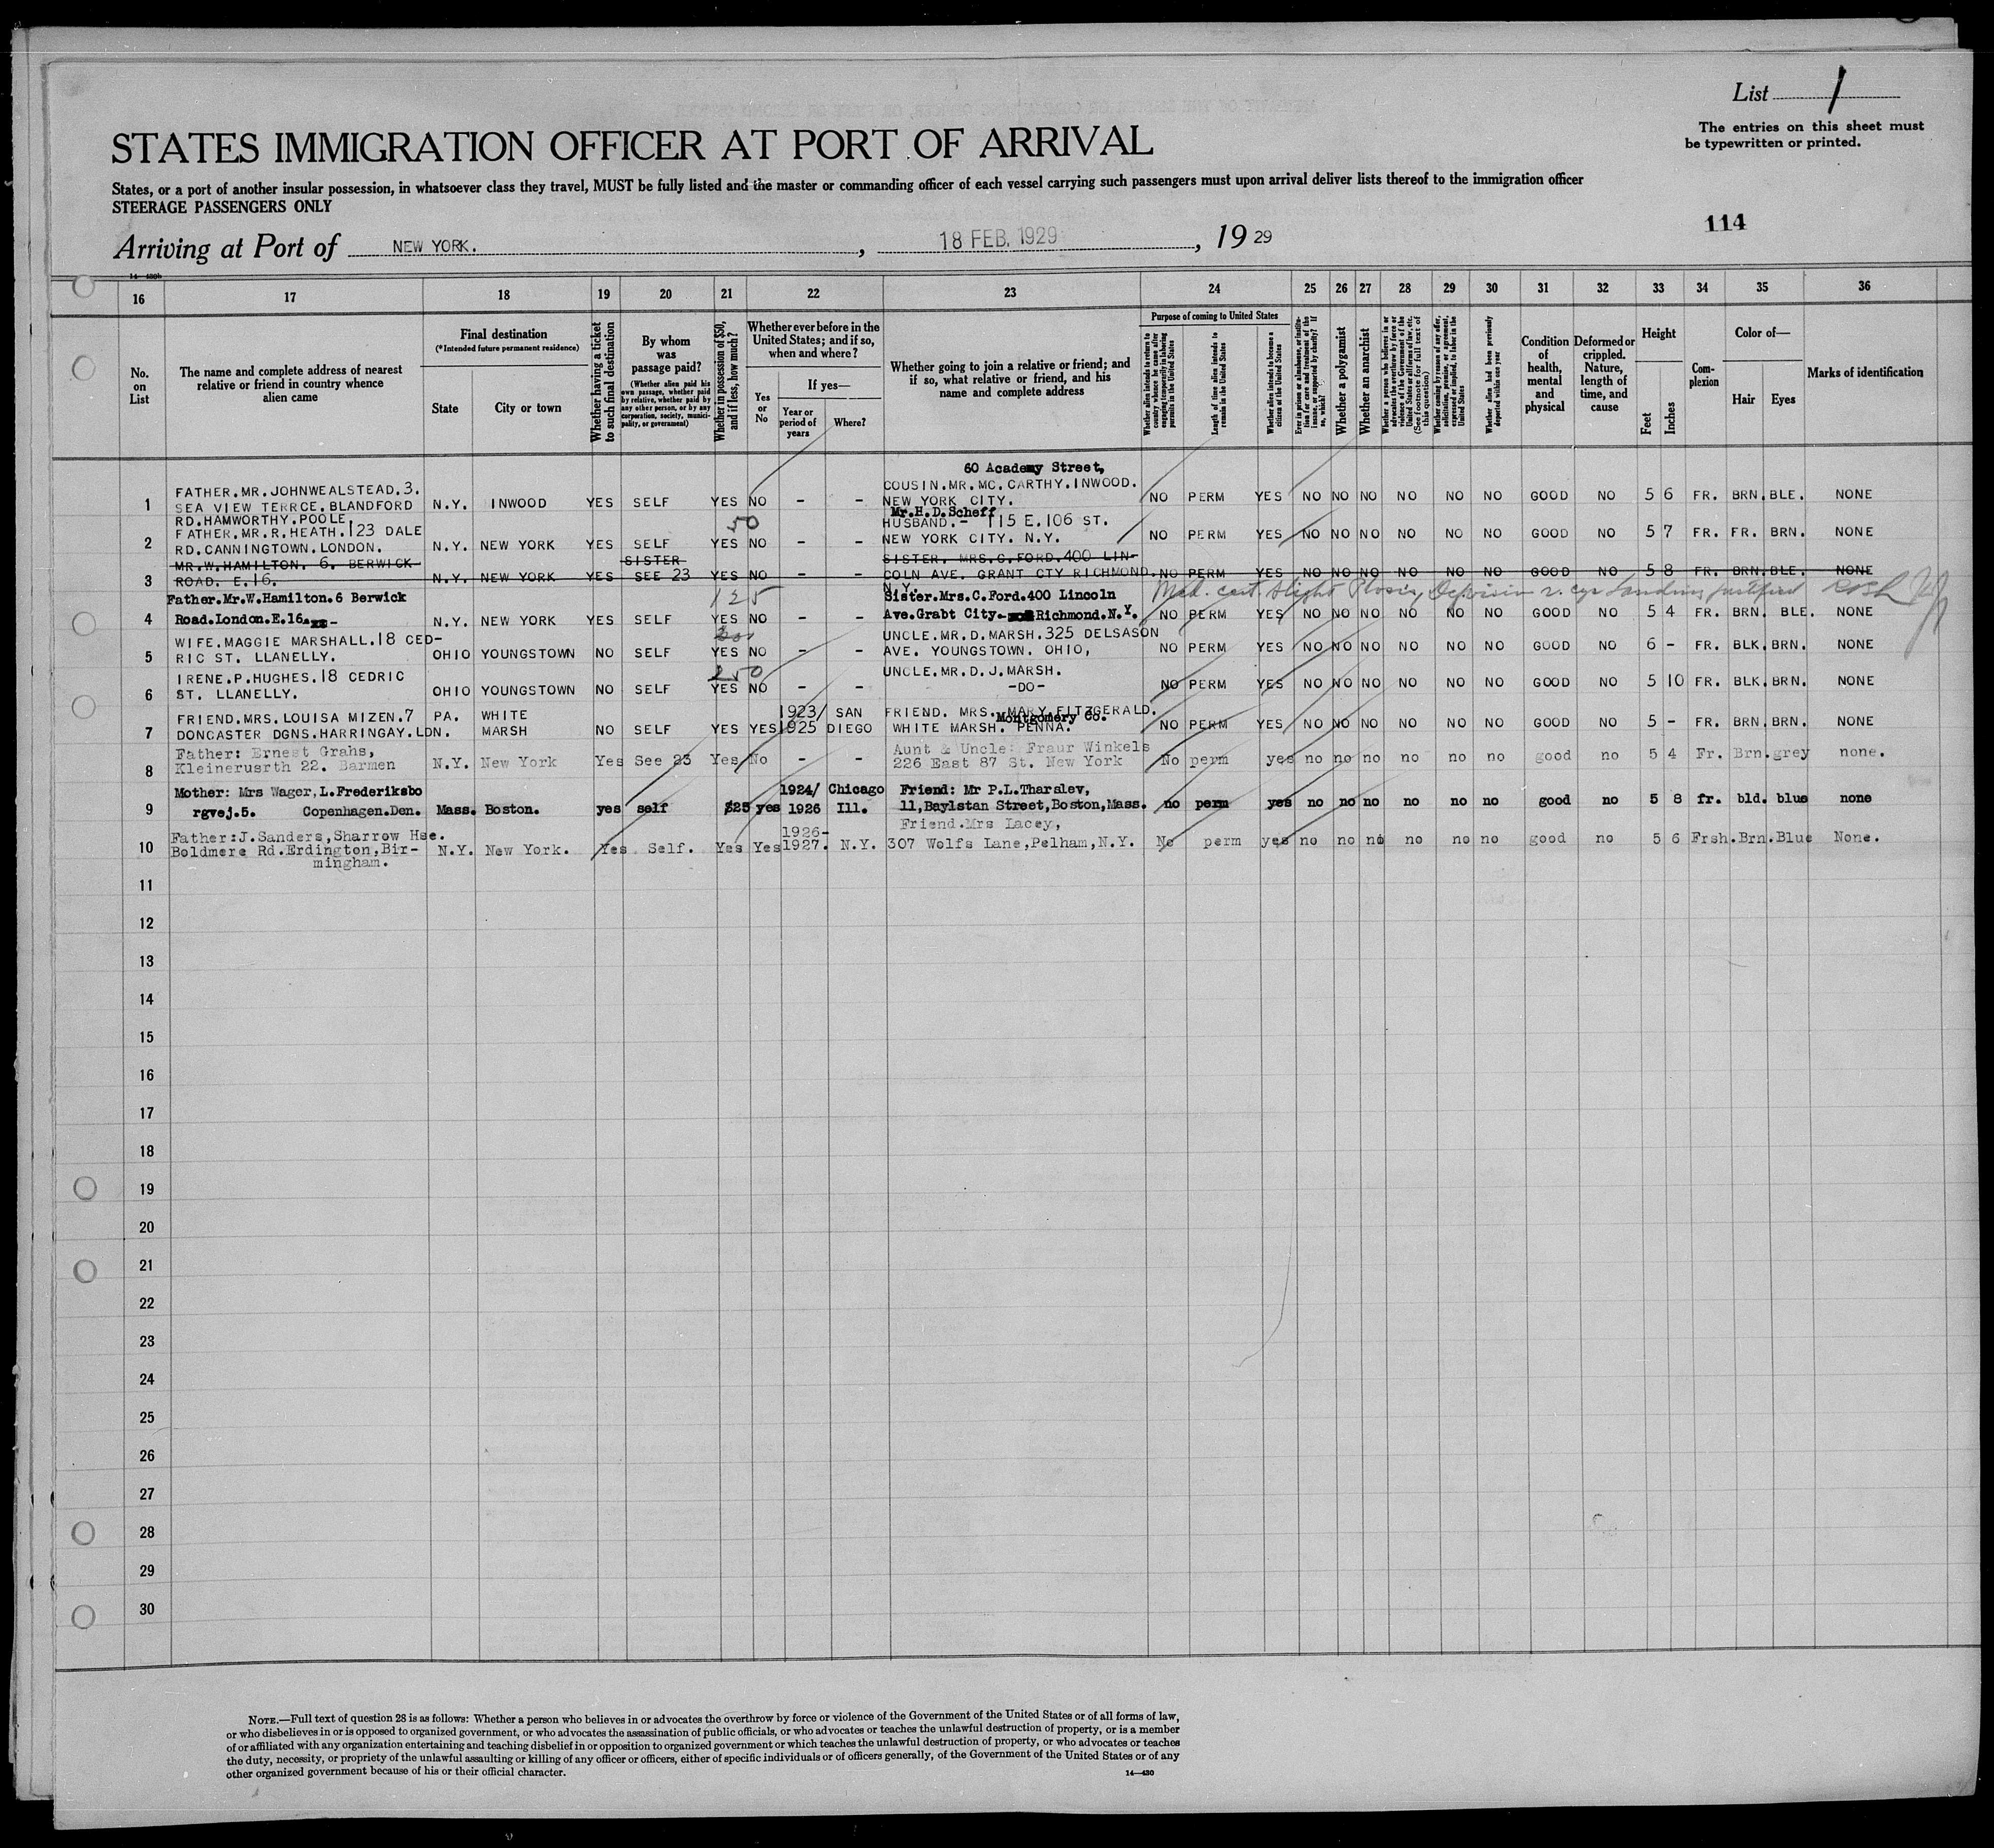 List 1
The entries on this sheet must
be typewritten or printed.
STATES IMMIGRATION OFFICER AT PORT OF ARRIVAL
States, or a port of another insular possession, in whatsoever class they travel, MUST be fully listed and the master or commanding officer of each vessel carrying such passengers must upon arrival deliver lists thereof to the immigration officer
STEERAGE PASSENGERS ONLY
114
Arriving at Port of NEW YORK. , 18 FEB. 1929 , 19 29
16 17 18 19 20 21 22 23 24 25 26 27 28 29 30 31 32 33 34 35 36
No. on List
The name and complete address of nearest relative or friend in country whence alien came
Final destination
(*Intended future permanent residence)
State
City or town
Whether having a ticket to such final destination
By whom was passage paid?
(Whether alien paid his own passage, whether paid by relative, whether paid by any other person, or by any corporation, society, municipality, or government)
Whether in possession of $50, and if less, how much?
Whether ever before in the United States; and if so, when and where?
Yes or No
If yes—
Year or period of years
Where?
Whether going to join a relative or friend; and if so, what relative or friend, and his name and complete address
Purpose of coming to United States
Whether alien intends to return to country whence he came after engaging temporarily in laboring pursuits in the United States
Length of time alien intends to remain in the United States
Whether alien intends to become a citizen of the United States
Ever in prison or almshouse, or institution for care and treatment of the insane, or supported by charity? If so, which?
Whether a polygamist
Whether an anarchist
Whether a person who believes in or advocates the overthrow by force or violence of the Government of the United States or all forms of law, etc. (See footnote for full text of this question)
Whether coming by reason of any offer, solicitation, promise, or agreement, expressed or implied, to labor in the United States
Whether alien had been previously deported within one year
Condition of health, mental and physical
Deformed or crippled. Nature, length of time, and cause
Height
Feet
Inches
Complexion
Color of—
Hair
Eyes
Marks of identification
60 Academy Street,
FATHER.MR.JOHNWEALSTEAD.3. COUSIN.MR.MC.CARTHY.INWOOD.
1 SEA VIEW TERRCE.BLANDFORD N.Y. INWOOD YES SELF YES NO - - NEW YORK CITY. NO PERM YES NO NO NO NO NO NO GOOD NO 5 6 FR. BRN. BLE. NONE
RD.HAMWORTHY.POOLE. Mr.H.D.Scheff
FATHER.MR.R.HEATH.123 DALE 50 HUSBAND.- 115 E.106 ST.
2 RD.CANNINGTOWN.LONDON. N.Y. NEW YORK YES SELF YES NO - - NEW YORK CITY. N.Y. NO PERM YES NO NO NO NO NO NO GOOD NO 5 7 FR. FR. BRN. NONE
MR.W.HAMILTON. 6. BERWICK SISTER SISTER. MRS.C.FORD.400 LIN-
3 ROAD. E.16. N.Y. NEW YORK YES SEE 23 YES NO - - COLN AVE. GRANT CTY RICHMOND. NO PERM YES NO NO NO NO NO NO GOOD NO 5 8 FR. BRN. BLE. NONE
N.Y.
Father.Mr.W.Hamilton.6 Berwick 125 Sister.Mrs.C.Ford.400 Lincoln Med. cert. slight
4 Road.London.E.16 N.Y. NEW YORK YES SELF YES NO - - Ave.Grabt City. Richmond.N.Y. NO PERM YES NO NO NO NO NO NO GOOD NO 5 4 FR. BRN. BLE. NONE
WIFE.MAGGIE MARSHALL.18 CED- UNCLE.MR.D.MARSH.325 DELSASON
5 RIC ST. LLANELLY. OHIO YOUNGSTOWN NO SELF YES NO - - AVE. YOUNGSTOWN. OHIO, NO PERM YES NO NO NO NO NO NO GOOD NO 6 - FR. BLK. BRN. NONE
IRENE.P.HUGHES.18 CEDRIC 250 UNCLE.MR.D.J.MARSH.
6 ST. LLANELLY. OHIO YOUNGSTOWN NO SELF YES NO - - -DO- NO PERM YES NO NO NO NO NO NO GOOD NO 5 10 FR. BLK. BRN. NONE
FRIEND.MRS.LOUISA MIZEN.7 PA. WHITE 1923/ SAN FRIEND. MRS. MARY FITZGERALD.
Montgomery Co.
7 DONCASTER DGNS.HARRINGAY.LDN. MARSH NO SELF YES YES 1925 DIEGO WHITE MARSH. PENNA. NO PERM YES NO NO NO NO NO NO GOOD NO 5 - FR. BRN. BRN. NONE
Father: Ernest Grahs, Aunt & Uncle: Fraur Winkels
8 Kleinerusrth 22. Barmen N.Y. New York Yes See 23 Yes No - - 226 East 87 St. New York No perm yes no no no no no no good no 5 4 Fr. Brn. grey none.
Mother: Mrs Wager,L.Frederiksbo 1924/ Chicago Friend: Mr P.L.Tharslev,
9 rgvej.5. Copenhagen.Den. Mass. Boston. yes self $25 yes 1926 Ill. 11,Baylstan Street,Boston,Mass. no perm yes no no no no no no good no 5 8 fr. bld. blue none
Father:J.Sanders,Sharrow Hse. 1926- Friend.Mrs Lacey,
10 Boldmere Rd.Erdington,Bir- N.Y. New York. Yes Self. Yes Yes 1927. N.Y. 307 Wolfs Lane,Pelham,N.Y. No perm yes no no no no no no good no 5 6 Frsh. Brn. Blue None.
mingham.
11
12
13
14
15
16
17
18
19
20
21
22
23
24
25
26
27
28
29
30
NOTE.—Full text of question 28 is as follows: Whether a person who believes in or advocates the overthrow by force or violence of the Government of the United States or of all forms of law,
or who disbelieves in or is opposed to organized government, or who advocates the assassination of public officials, or who advocates or teaches the unlawful destruction of property, or is a member
of or affiliated with any organization entertaining and teaching disbelief in or opposition to organized government or which teaches the unlawful destruction of property, or who advocates or teaches
the duty, necessity, or propriety of the unlawful assaulting or killing of any officer or officers, either of specific individuals or of officers generally, of the Government of the United States or of any
other organized government because of his or their official character.
14—430